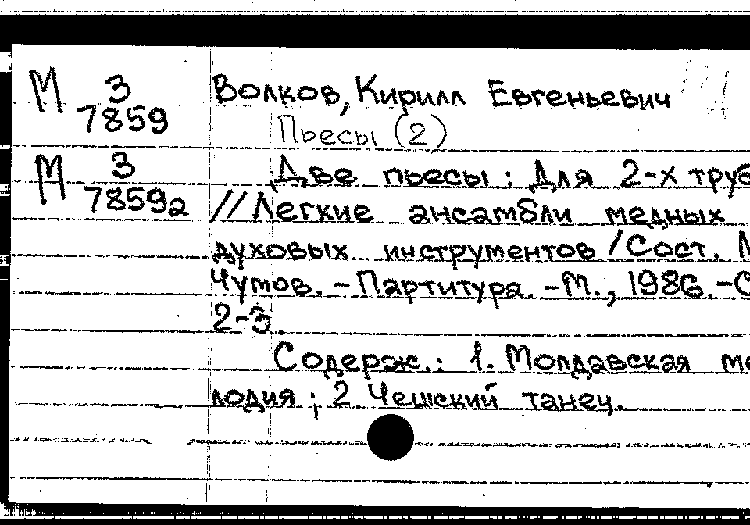 М 3 7859 Волков, Кирилл Евгеньевич
Пьесы (2)
М 3 7859а Две пьесы : Для 2-х труб
// Легкие ансамбли медных
духовых инструментов / Сост.
Чумов. - Партитура. - М., 1986. - С
2-3.
Содерж.: 1. Молдавская ме
лодия ; 2 Чешский танец.